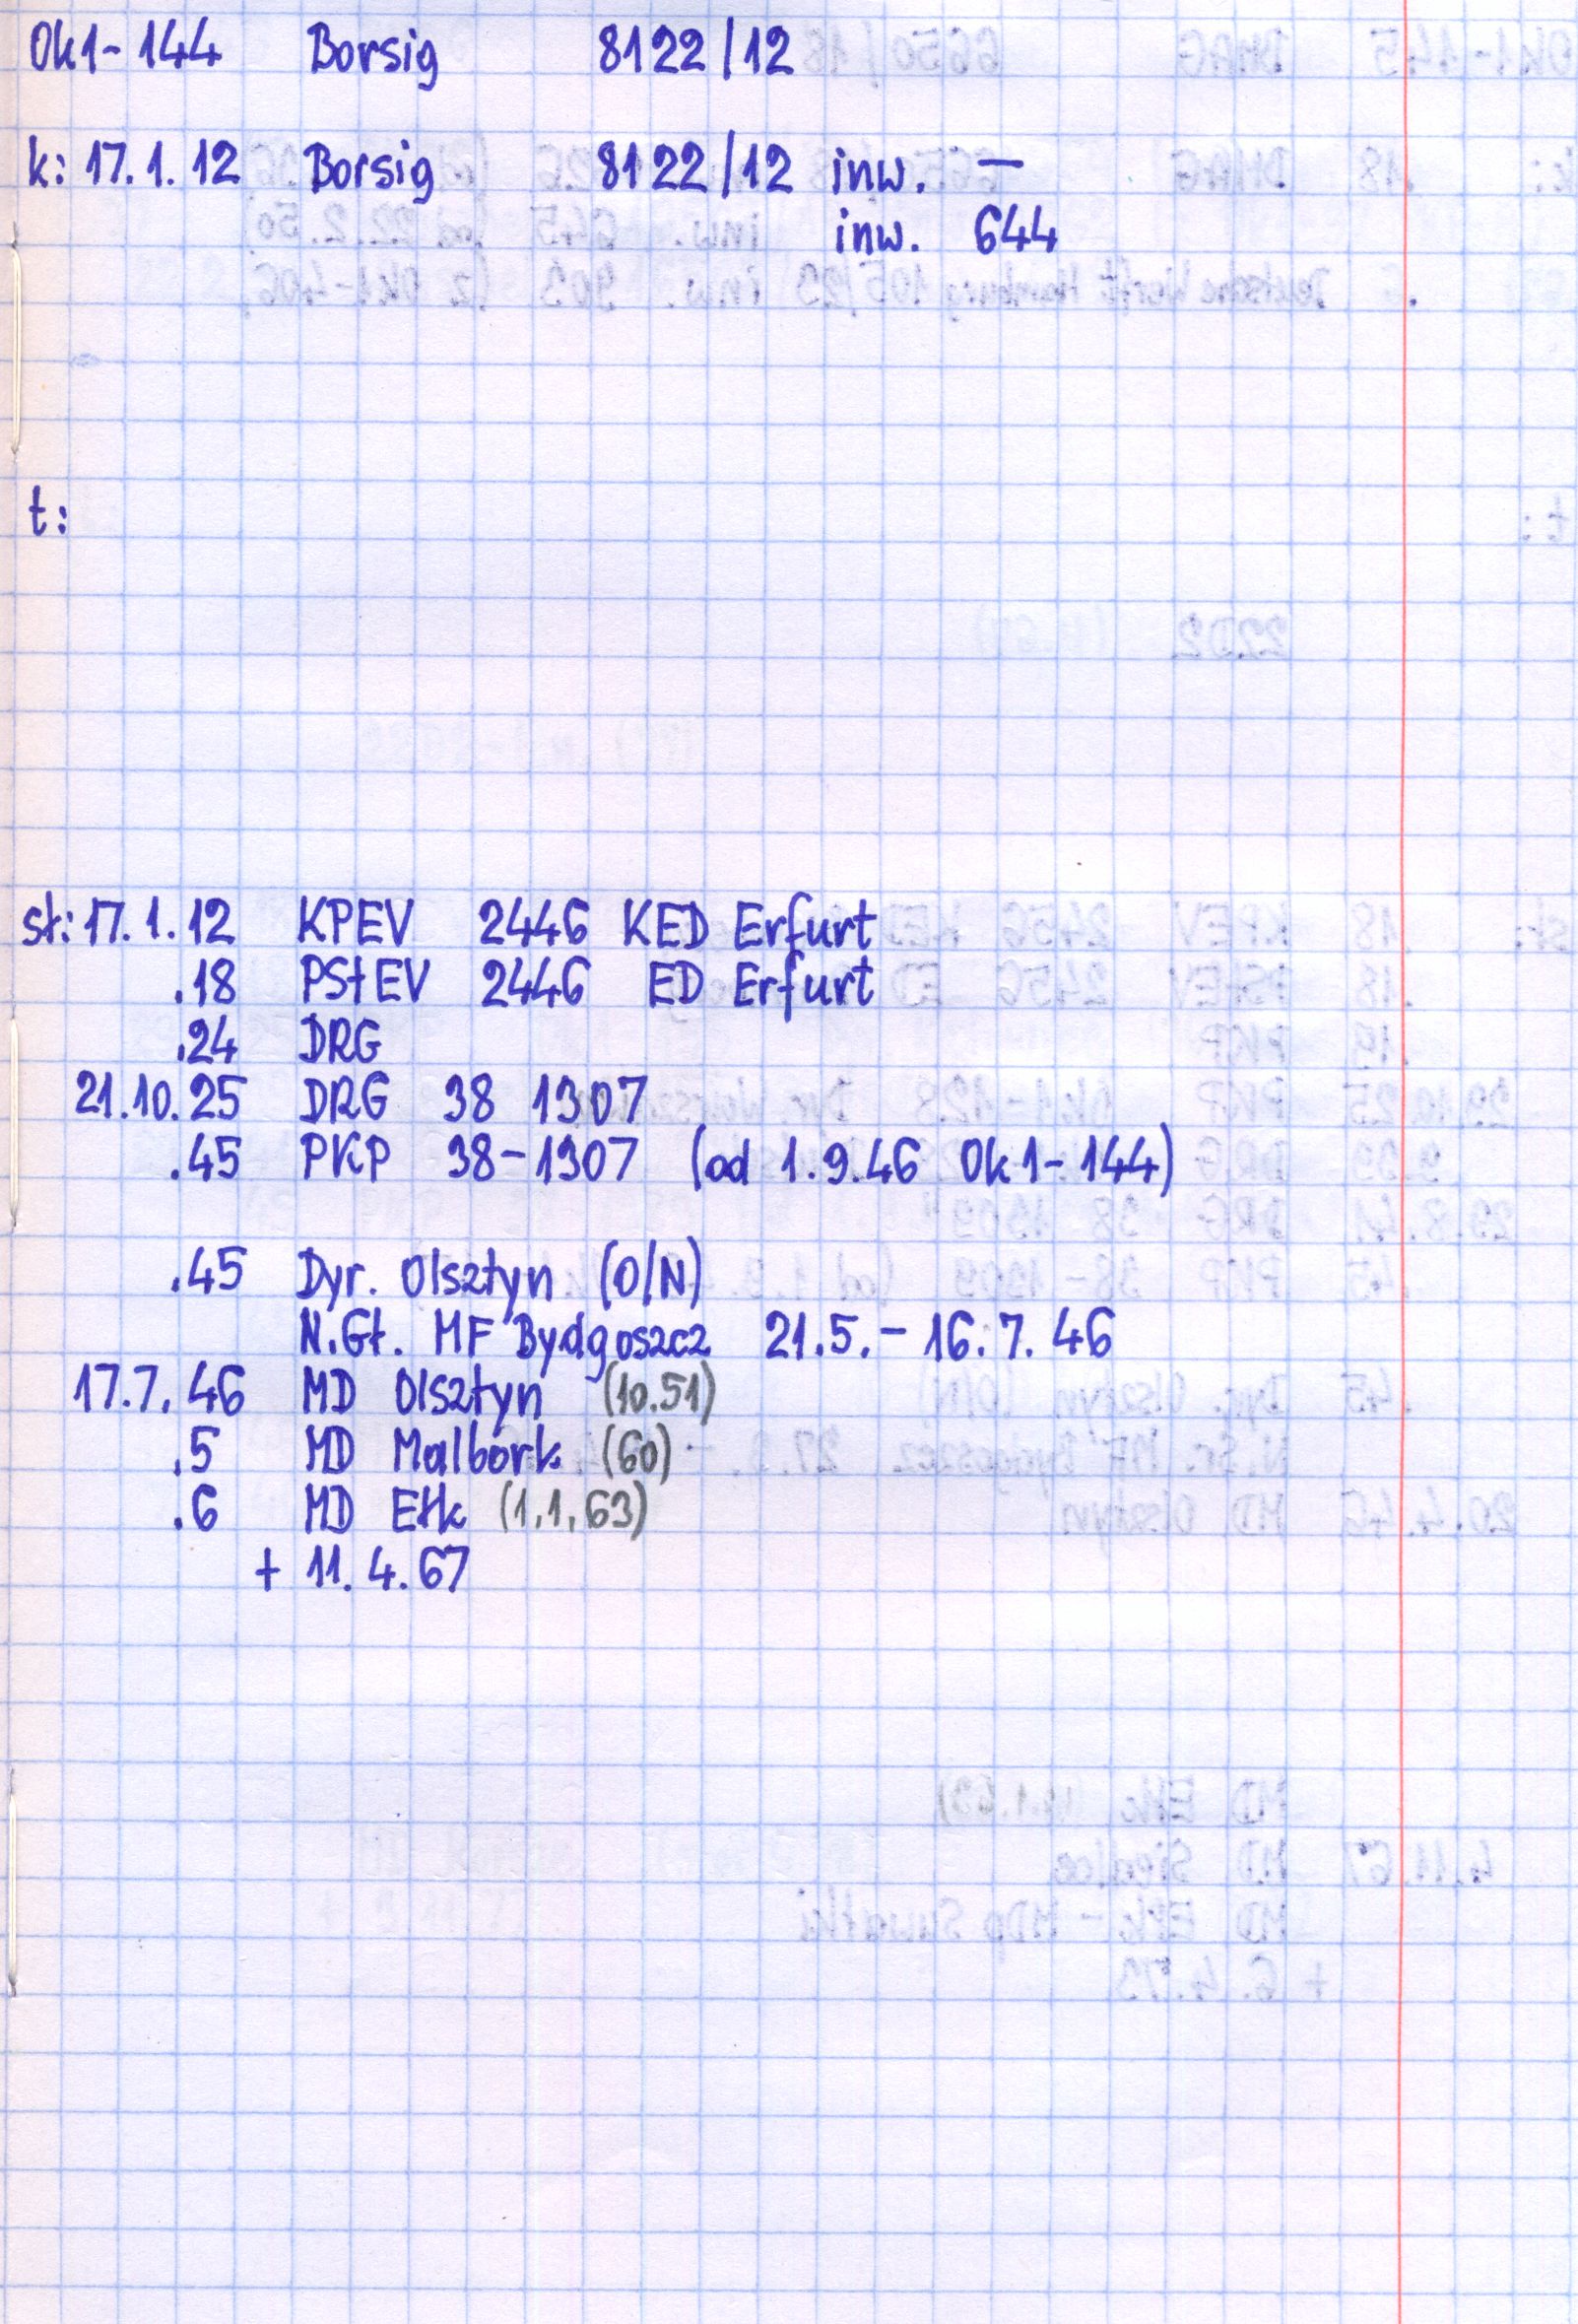 Ok1-144 Borsig 8122/12
k: 17.1.12 Borsig 8122/12 inw. —
inw. 644
t:
st: 17.1.12 KPEV 2446 KED Erfurt
.18 PStEV 2446 ED Erfurt
.24 DRG
21.10.25 DRG 38 1307
.45 PKP 38-1307 (od 1.9.46 Ok1-144)
.45 Dyr. Olsztyn (O/N)
N.Gł. MF Bydgoszcz 21.5.-16.7.46
17.7.46 MD Olsztyn (10.51)
.5 MD Malbork (60)
.6 MD Ełk (1.1.63)
+ 11.4.67